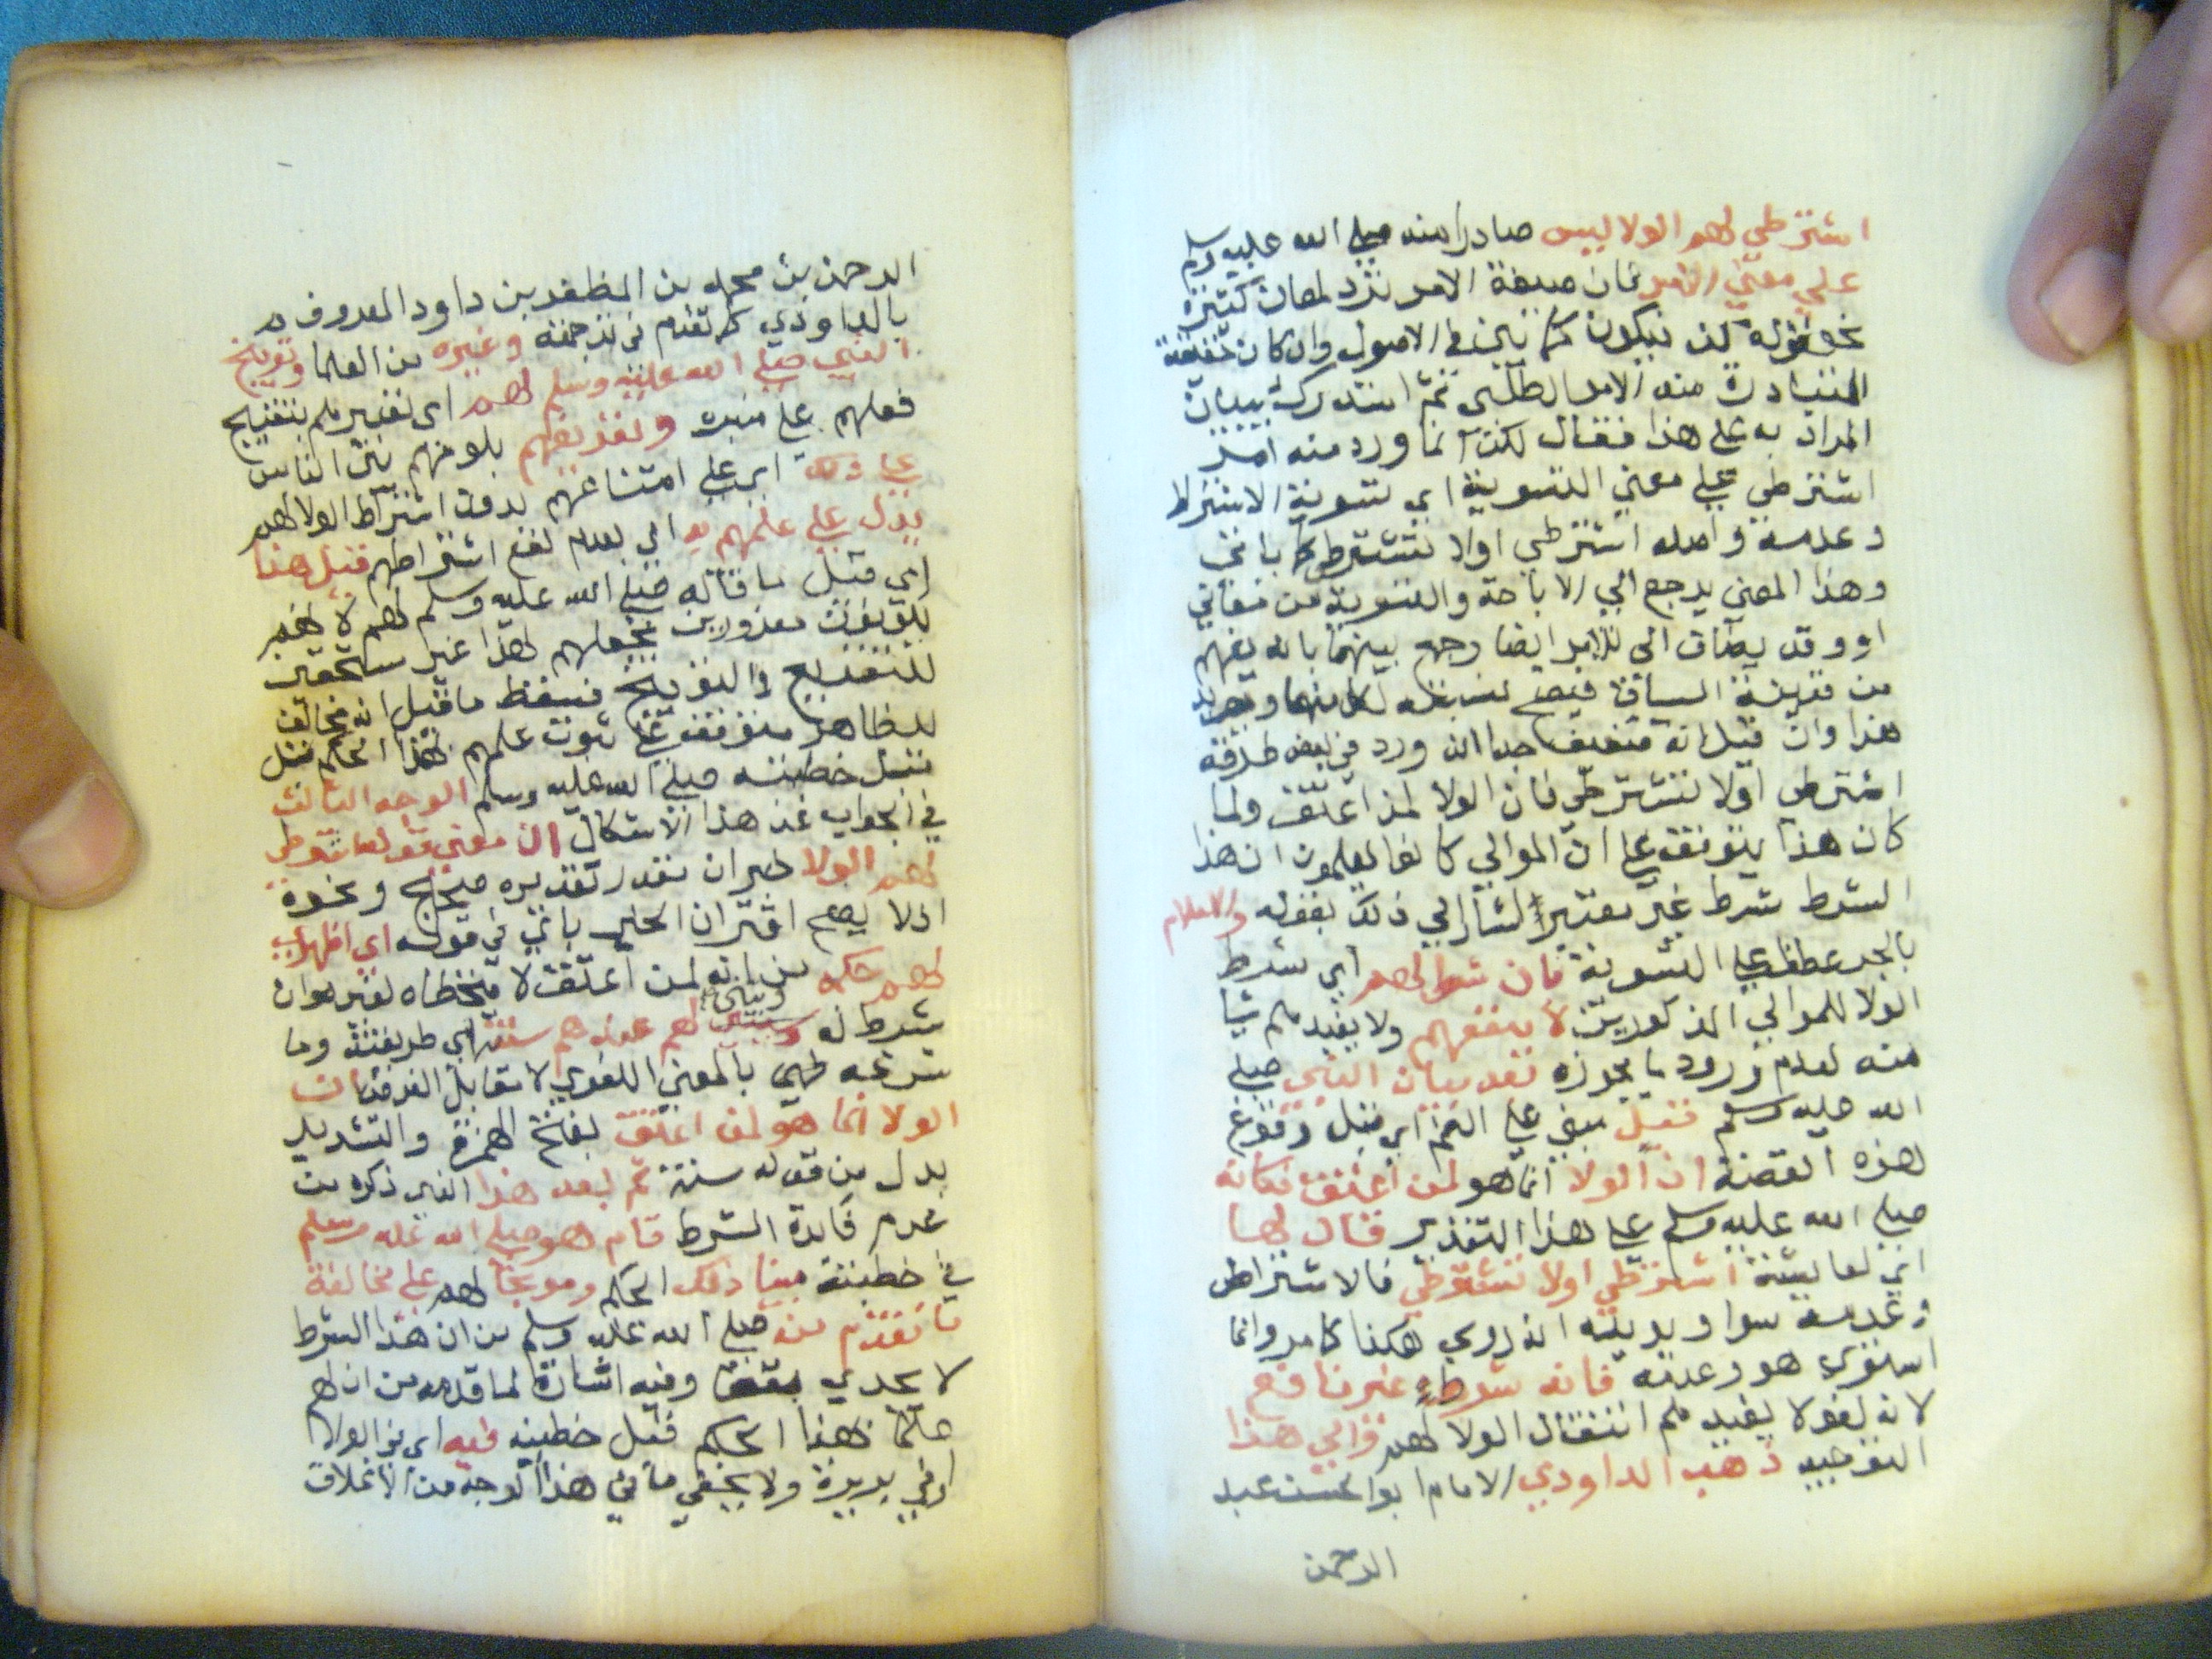 اشترطي لهم الولا ليس صادرا منه صلي الله عليه وسلم
علي معني الامر فان صيغة الامر ترد لمعان كثيرة
نحو قوله كن فيكون كما بين في الاصول وان كان حقيقة
المتبادرة منه الامر الطلبي ثم استدرك ببيان
المراد به علي هذا فقال لكن انما ورد منه امر
اشترطي علي معني التسوية اي تسوية الاشتراط
وعدمه واصله اشترطي اولا تشترطي
وهذا المعني يرجع الي الاباحة والتسوية من معاني
او وقد يضاف الي الامر ايضا وجمع بينهما بانه يفهم
من قرينة السياق فيصح نسبته لكل منهما
هذا وان قيل انه ضعيف جدا انه ورد في بعض طرقه
اشترطي اولا تشترطي فان الولا لمن اعتق ولما
كان هذا يتوقف علي ان الموالي كانوا يعلمون ان هذا
الشرط شرط غير معتبر اشار الي ذلك بقوله والاعلام
بالجر عطف علي التسوية فان شرط لهم اي شرط
الولا للموالي المذكورين لا ينفعهم ولا يفيدهم شيا
منه لعدم ورود ما يجوزه بعد بيان النبي صلي
الله عليه وسلم قبل مبني علي الضم اي قبل وقوع
هذه القصة ان الولا انما هو لمن اعتق فكانه
صلي الله عليه وسلم علي هذا التقدير قال لها
اي لعايشة اشترطي اولا تشترطي فالاشتراط
وعدمه سوا ويويده انه روي هكذا كما مر وانما
استوي هو وعدمه فانه شرط غير نافع
لانه لغو لا يفيدهم انتقال الولا لهم والي هذا
التوجيه ذهب الداودي الامام ابو الحسن عبد
الرحمن
الرحمن بن محمد بن المظفر بن داود المعروف
بالداودي كما تقدم في ترجمته وغيره من العلما وتوبيخ
النبي صلي الله عليه وسلم لهم اي تعييرهم بتقبيح
فعلهم علي منبره وتقريعهم بلومهم بين الناس
علي ذلك اي علي امتناعهم بدون اشتراط الولا لهم
يدل علي علمهم به اي بعدم نفع اشتراطهم قبل هذا
اي قبل ما قاله صلي الله عليه وسلم لهم لانهم
يكونون معذورين بجهلهم لهذا غير مستحقين
للتقريع والتوبيخ فسقط ما قيل انه مخالف
للظاهر متوقف علي ثبوت علمهم بهذا الحكم قبل
قبل خطبته صلي الله عليه وسلم الوجه الثالث
في الجواب عن هذا الاشكال ان معني قوله اشترطي
لهم الولا خبر ان بقدر تقديره صحيح ونحوه
اذلا يصح اقتران الخبر باي في قوله اي اظهري
لهم حكمه من انه لمن اعتق لا يتخطاه لغيره وان
شرط له وبيني لهم عنده هم سنته اي طريقته وما
شرعه فهي بالمعني اللغوي لا مقابل الفرض ان
الولا انما هو لمن اعتق بفتح الهمزة والتشديد
بدل من قوله سنة ثم بعد هذا الذي ذكره من
عدم فايدة الشرط قام هو صلي الله عليه وسلم
في خطبته مبينا ذلك الحكم وموبخا لهم علي مخالفة
ما تقدم منه صلي الله عليه وسلم من ان هذا الشرط
لا يجدي نفعا وفيه اشارة لما قدمه من ان لهم
علما بهذا الحكم قبل خطبته فيه اي في الولا
او في بريرة ولا يخفي ما في هذا الوجه من الاغلاق